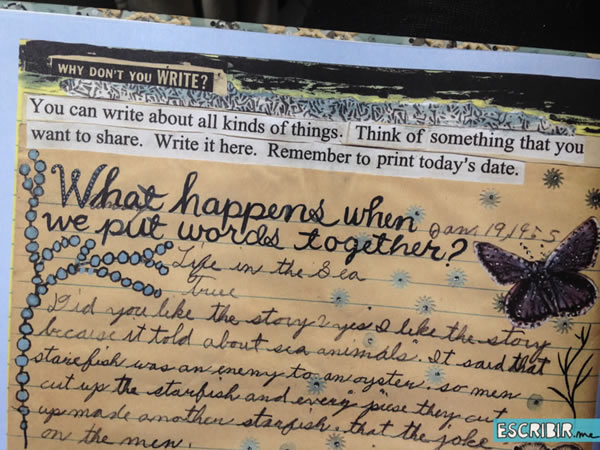 WHY DON'T YOU WRITE?
You can write about all kinds of things. Think of something that you
want to share. Write it here. Remember to print today's date.
What happens when
we put words together?
Jan. 19, 1955
Life in the Sea
true
Did you like the story? yes I like the story
because it told about sea animals. It said that
starefish was an enemy to an oyster. so men
cut up the starfish and every piese they cut
up made another starfish. that the joke
on the men.
ESCRIBIR.me